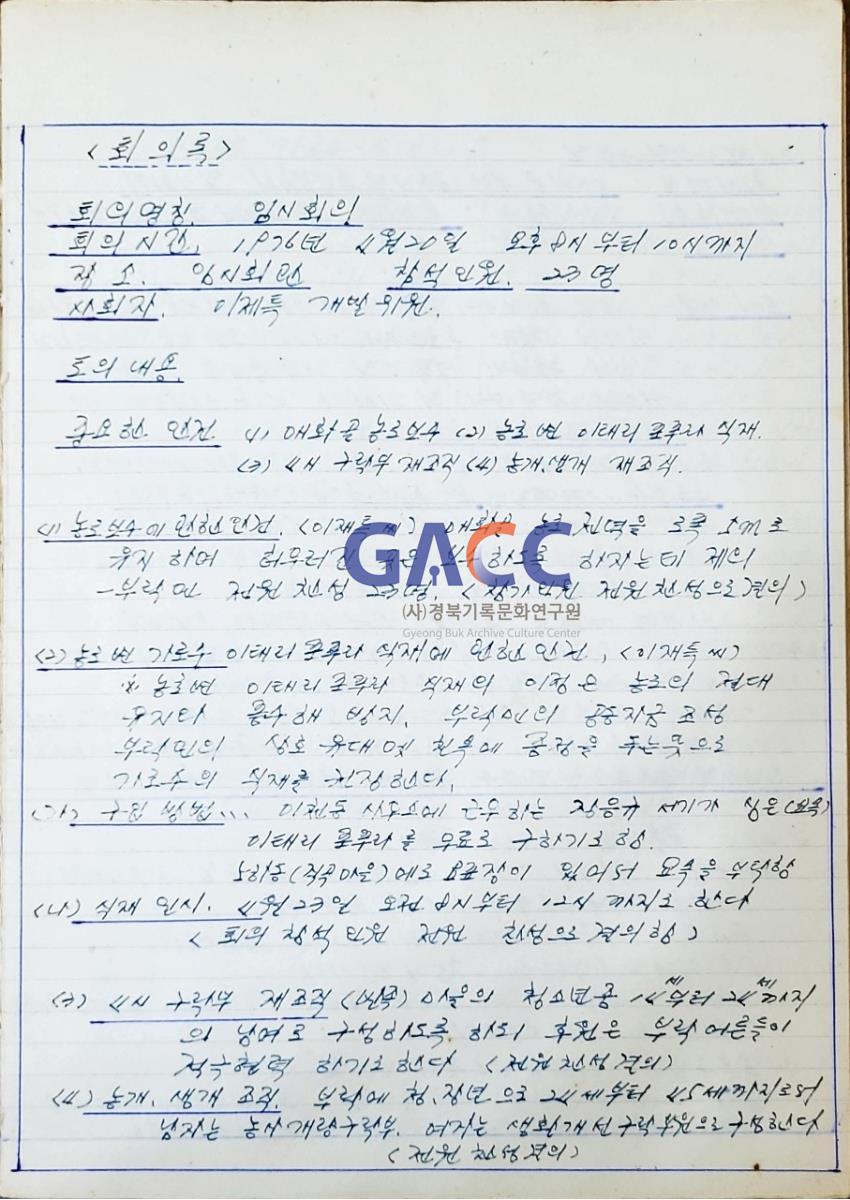 <회의록>
회의명칭. 임시회의
회의시간. 1976년 4월20일 오후 8시부터 10시까지
장소. 임시회관 참석인원. 23명
사회자. 이제특 개발위원.
토의내용.
중요한 안건 (1) 매화골 농로보수 (2) 농로변 이태리포푸라 식재.
(3) 4H 구락부 재조직 (4) 농개.생개 재조직.
(1) 농로보수에 관한 안건. (이재특씨) 매화골 농로 전역을 로폭 5m로
유지하며 허무러진 곳은 보수하도록 하자는데 제의
-부락민 전원 찬성 23명. <참가인원 전원 찬성으로 결의>
GACC
(사)경북기록문화연구원
Gyeong Buk Archive Culture Center
(2) 농로변 가로수 이태리포푸라 식재에 관한 안건, <이재특씨>
※ 농로변 이태리포푸라 식재의 이점은 농로의 절대
유지와 풍수해 방지. 부락민의 공동자금 조성
부락민의 상호유대 및 친목에 중점을 두는 뜻으로
가로수의 식재를 권장한다.
(가) 구입 방법... 이천동 사무소에 근무하는 장응규 서기가 심은(묘목)
이태리포푸라를 무료로 구하기로 함.
노하동(적곡마을)에도 묘포장이 있어서 묘목을 부탁함
(나) 식재 일시. 4월 23일 오전 8시부터 12시까지로 한다
<회의 참석인원 전원 찬성으로 결의함>
(3) 4H 구락부 재조직 (반촉) 마을의 청소년중 14세부터 24세까지
의 남여로 구성하도록 하되 후원은 부락 어른들이
적극협력 하기로 한다 <전원 찬성 결의>
(4) 농개. 생개 조직. 부락에 청.장년으로 24세부터 45세까지로서
남자는 농사개량구락부. 여자는 생활개선구락부원으로 구성한다
<전원 찬성 결의>